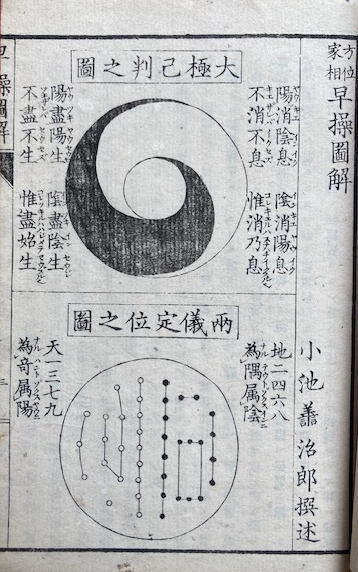 方位
家相
早操圖解
小池譱治郎撰述
大極己判之圖
陽消陰息
不消不息
陰消陽息
惟消乃息
陽盡陽生
不盡不生
陰盡陰生
惟盡始生
兩儀定位之圖
地二四六八
為隅属陰
天一三七九
為奇属陽
早操圖解